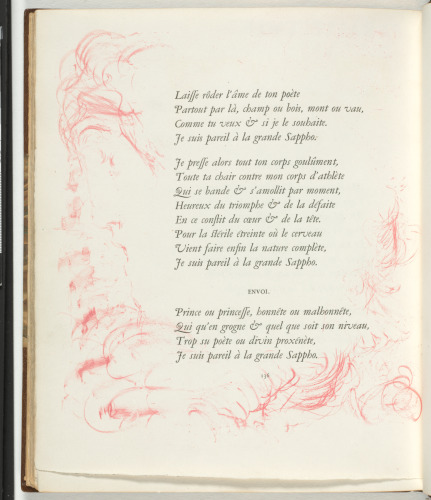 Laisse rôder l'âme de ton poète
Partout par là, champ ou bois, mont ou vau,
Comme tu veux & si je le souhaite.
Je suis pareil à la grande Sappho.
Je presse alors tout ton corps goulûment,
Toute ta chair contre mon corps d'athlète
Qui se bande & s'amollit par moment,
Heureux du triomphe & de la défaite
En ce conflit du cœur & de la tête.
Pour la stérile étreinte où le cerveau
Vient faire enfin la nature complète,
Je suis pareil à la grande Sappho.
ENVOI.
Prince ou princesse, honnête ou malhonnête,
Qui qu'en grogne & quel que soit son niveau,
Trop su poète ou divin proxénète,
Je suis pareil à la grande Sappho.